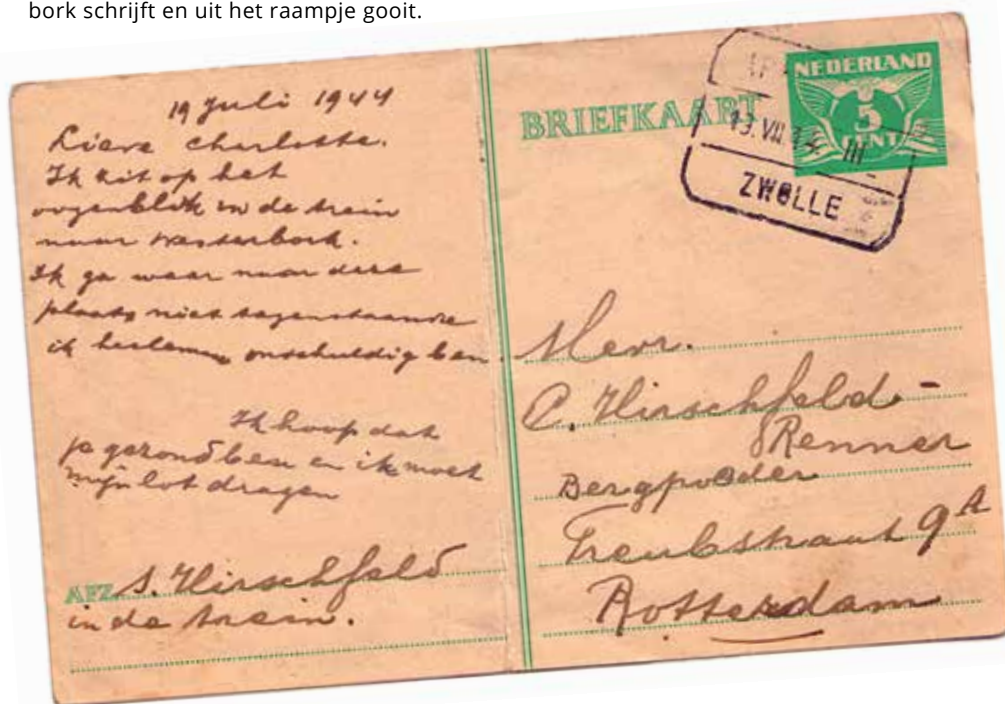 bork schrijft en uit het raampje gooit.
19 Juli 1944
Lieve Charlotte.
Ik zit op het
oogenblik in de trein
naar Westerbork.
Ik ga waar naar deze
plaats niet tegenstaande
ik heelemaal onschuldig ben.
Ik hoop dat
je gezond ben en ik moet
mijn lot dragen
AFZ. S. Hirschfeld
in de trein.
BRIEFKAART
NEDERLAND
5
CENT
19.VII.
III
ZWOLLE
Mevr.
C. Hirschfeld-
Renner
Bergpolder
Treubstraat 9A
Rotterdam